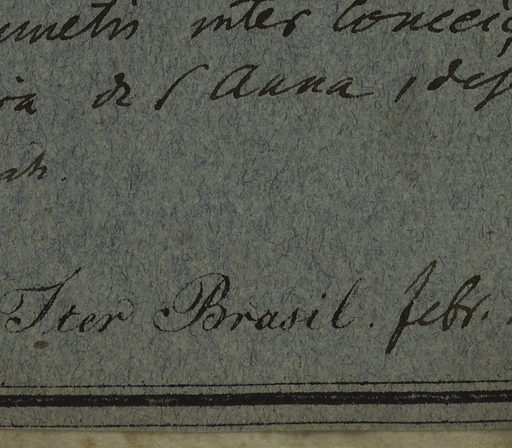 umetis inter Conceiç
ria de S Anna, des
ah.
Iter Brasil. febr.